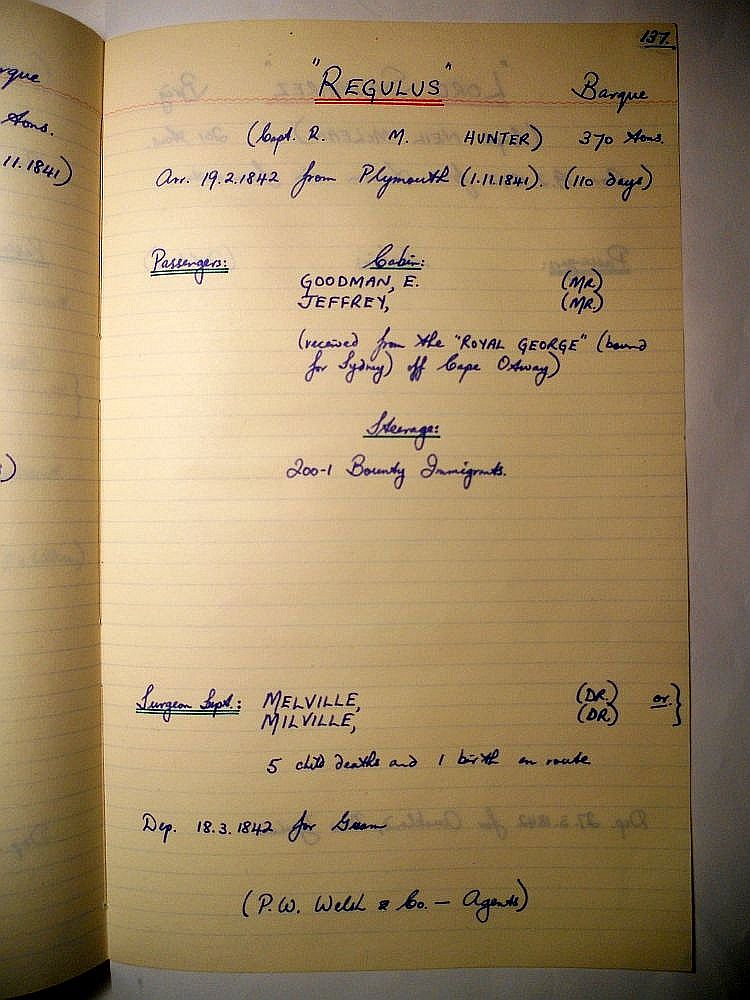 rque
tons.
11.1841)
137.
"REGULUS" Barque
(Capt. R. M. HUNTER) 370 tons.
Arr. 19.2.1842 from Plymouth (1.11.1841). (110 days)
Passengers: Cabin:
GOODMAN, E. (MR)
JEFFREY, (MR.)
(received from the "ROYAL GEORGE" (bound
for Sydney) off Cape Otway)
Steerage:
200-1 Bounty Immigrants.
Surgeon Supt.: MELVILLE, (DR.) or }
MILVILLE, (DR.)
5 child deaths and 1 birth en route
Dep. 18.3.1842 for Guam
(P.W. Welsh & Co. — Agents)